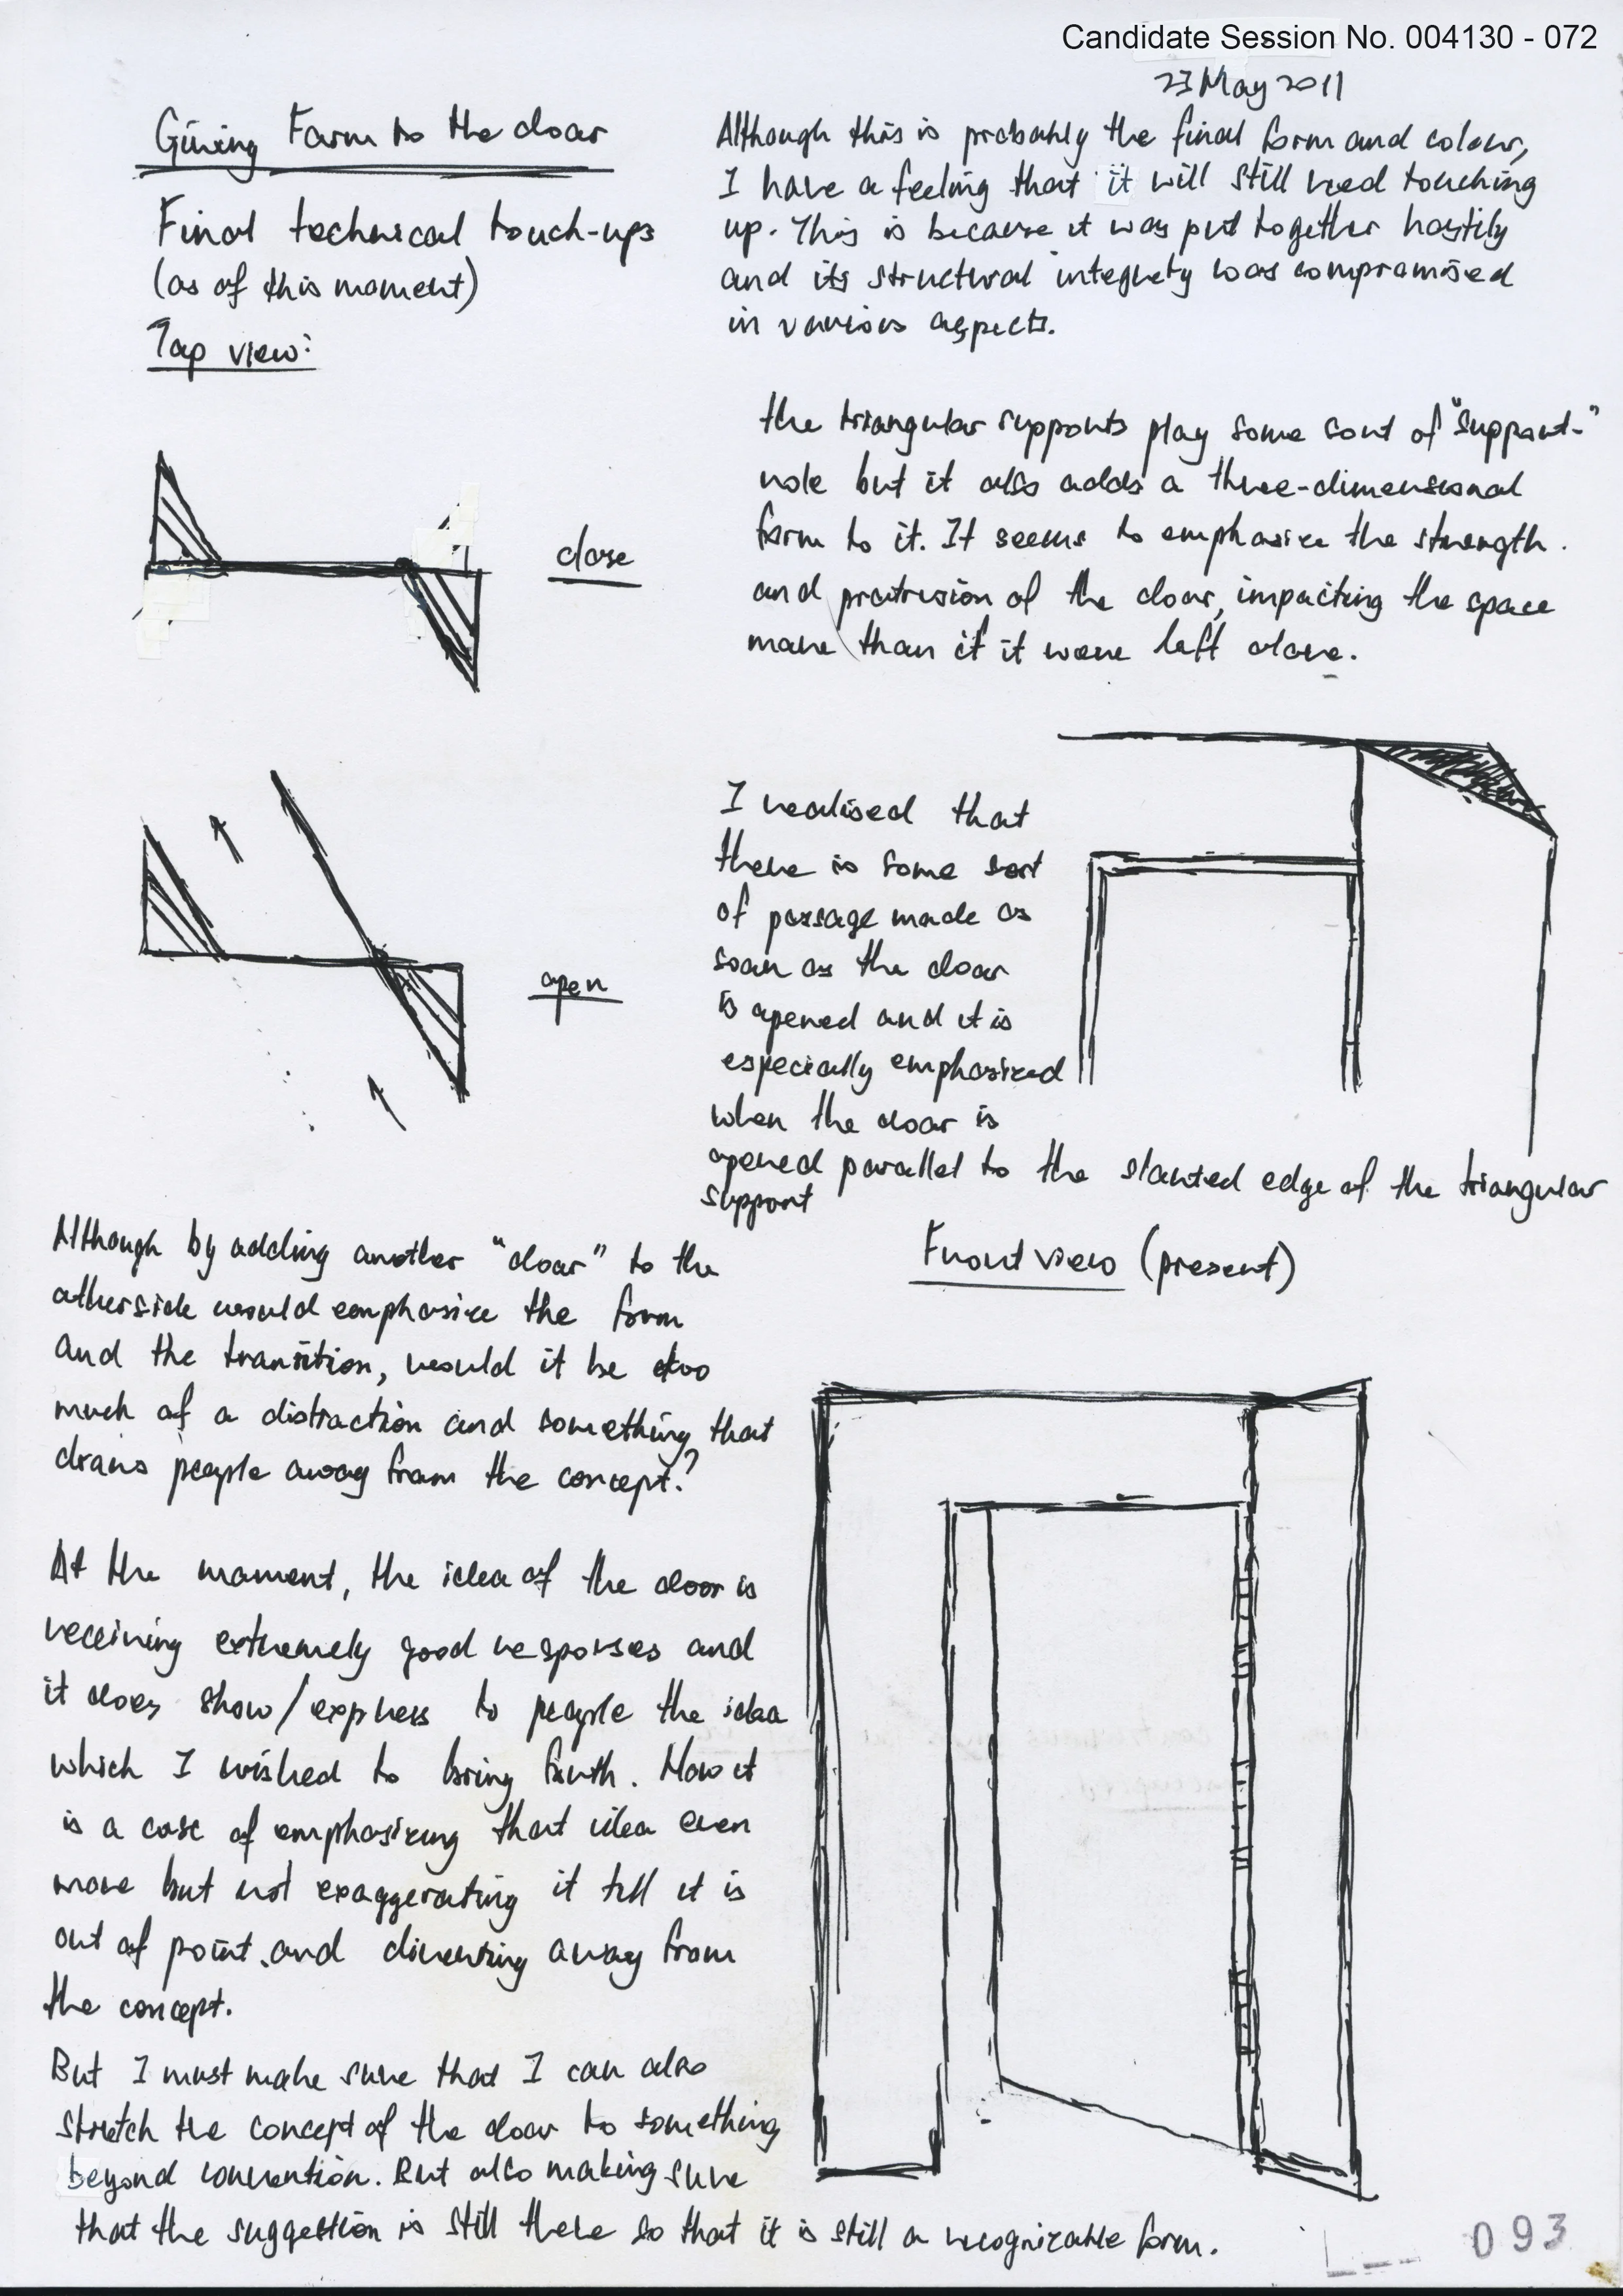 Candidate Session No. 004130 - 072
23 May 2011
Giving Form to the door
Final technical touch-ups
(as of this moment)
Top view:
Although this is probably the final form and colour,
I have a feeling that it will still need touching
up. This is because it was put together hastily
and its structural integrety was compromised
in various aspects.
the triangular supports play some sort of "support"
role but it also adds a three-dimensional
form to it. It seems to emphasize the strength
and protrusion of the door, impacting the space
more than if it were left alone.
close
I realised that
there is some sort
of passage made as
soon as the door
is opened and it is
especially emphasized
when the door is
opened parallel to the slanted edge of the triangular
support
open
Although by adding another "door" to the
otherside would emphasize the form
and the transition, would it be too
much of a distraction and something that
draws people away from the concept?
Front view (present)
At the moment, the idea of the door is
receiving extremely good responses and
it does show/express to people the idea
which I wished to bring forth. Now it
is a case of emphasizing that idea even
more but not exaggerating it till it is
out of point and diverting away from
the concept.
But I must make sure that I can also
stretch the concept of the door to something
beyond convention. But also making sure
that the suggestion is still there so that it is still a recognizable form.
093